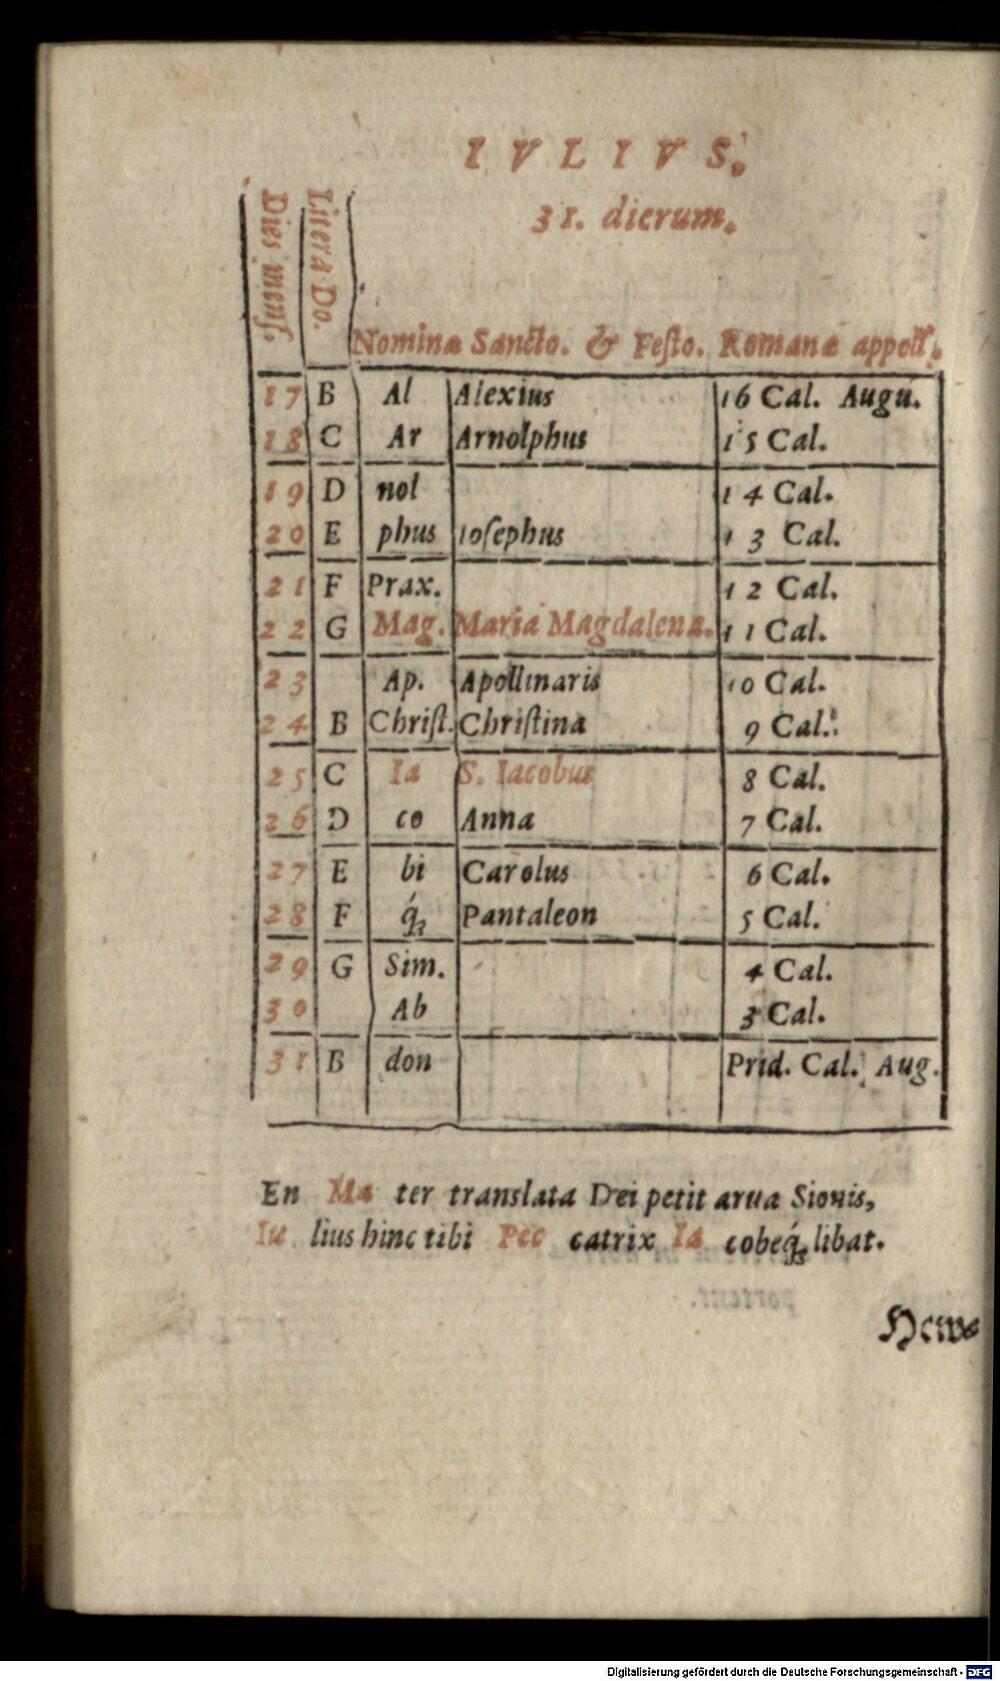 IVLIVS.
31. dierum.
Dies mens.
Litera Do.
Nomina Sancto. & Festo. Romanæ appell.
17 B Al Alexius 16 Cal. Augu.
18 C Ar Arnolphus 15 Cal.
19 D nol 14 Cal.
20 E phus Iosephus 13 Cal.
21 F Prax. 12 Cal.
22 G Mag. Maria Magdalena. 11 Cal.
23 Ap. Apollinaris 10 Cal.
24 B Christ. Christina 9 Cal.
25 C Ia S. Iacobus 8 Cal.
26 D co Anna 7 Cal.
27 E bi Carolus 6 Cal.
28 F q́; Pantaleon 5 Cal.
29 G Sim. 4 Cal.
30 Ab 3 Cal.
31 B don Prid. Cal. Aug.
En Ma ter translata Dei petit arua Sionis,
Iu lius hinc tibi Pec catrix Ia cobeq́; libat.
Hew-
Digitalisierung gefördert durch die Deutsche Forschungsgemeinschaft - DFG